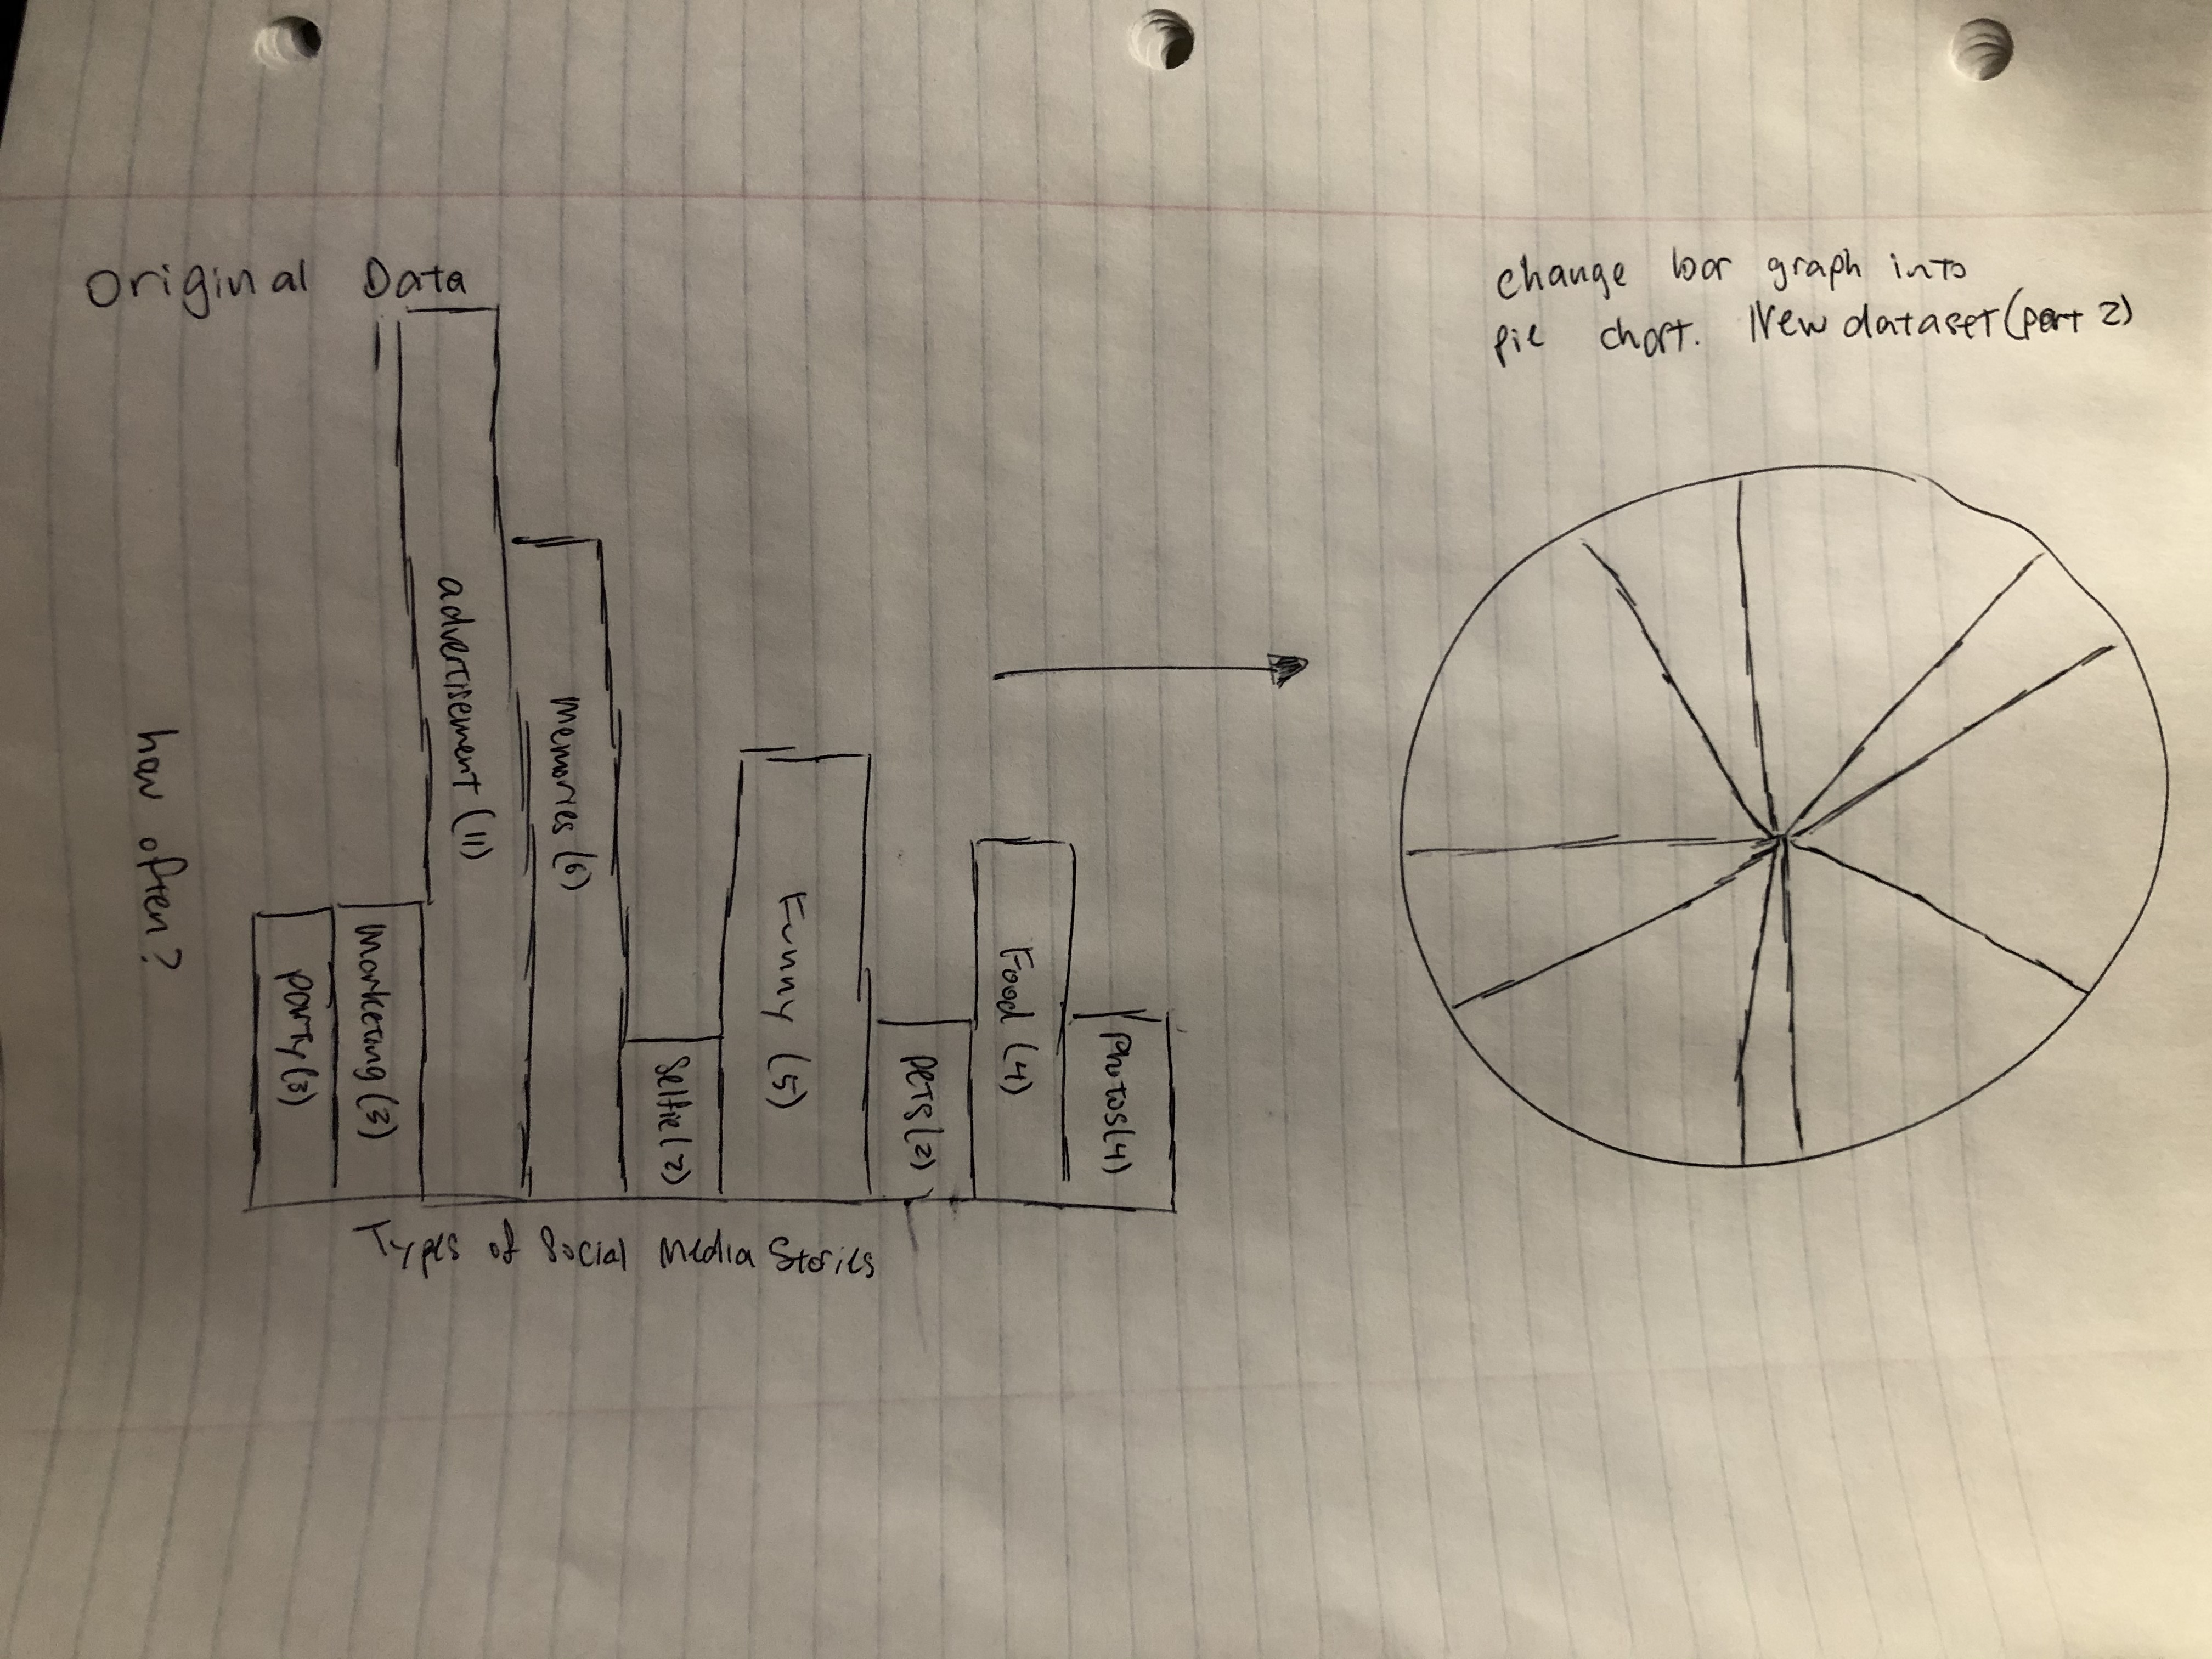 Original Data
how often?
party (3)
marketing (3)
advertisement (11)
memories (6)
selfie (2)
Funny (5)
pets (2)
Food (4)
photos (4)
Types of Social Media Stories
Change bar graph into
pie chart. New dataset (part 2)